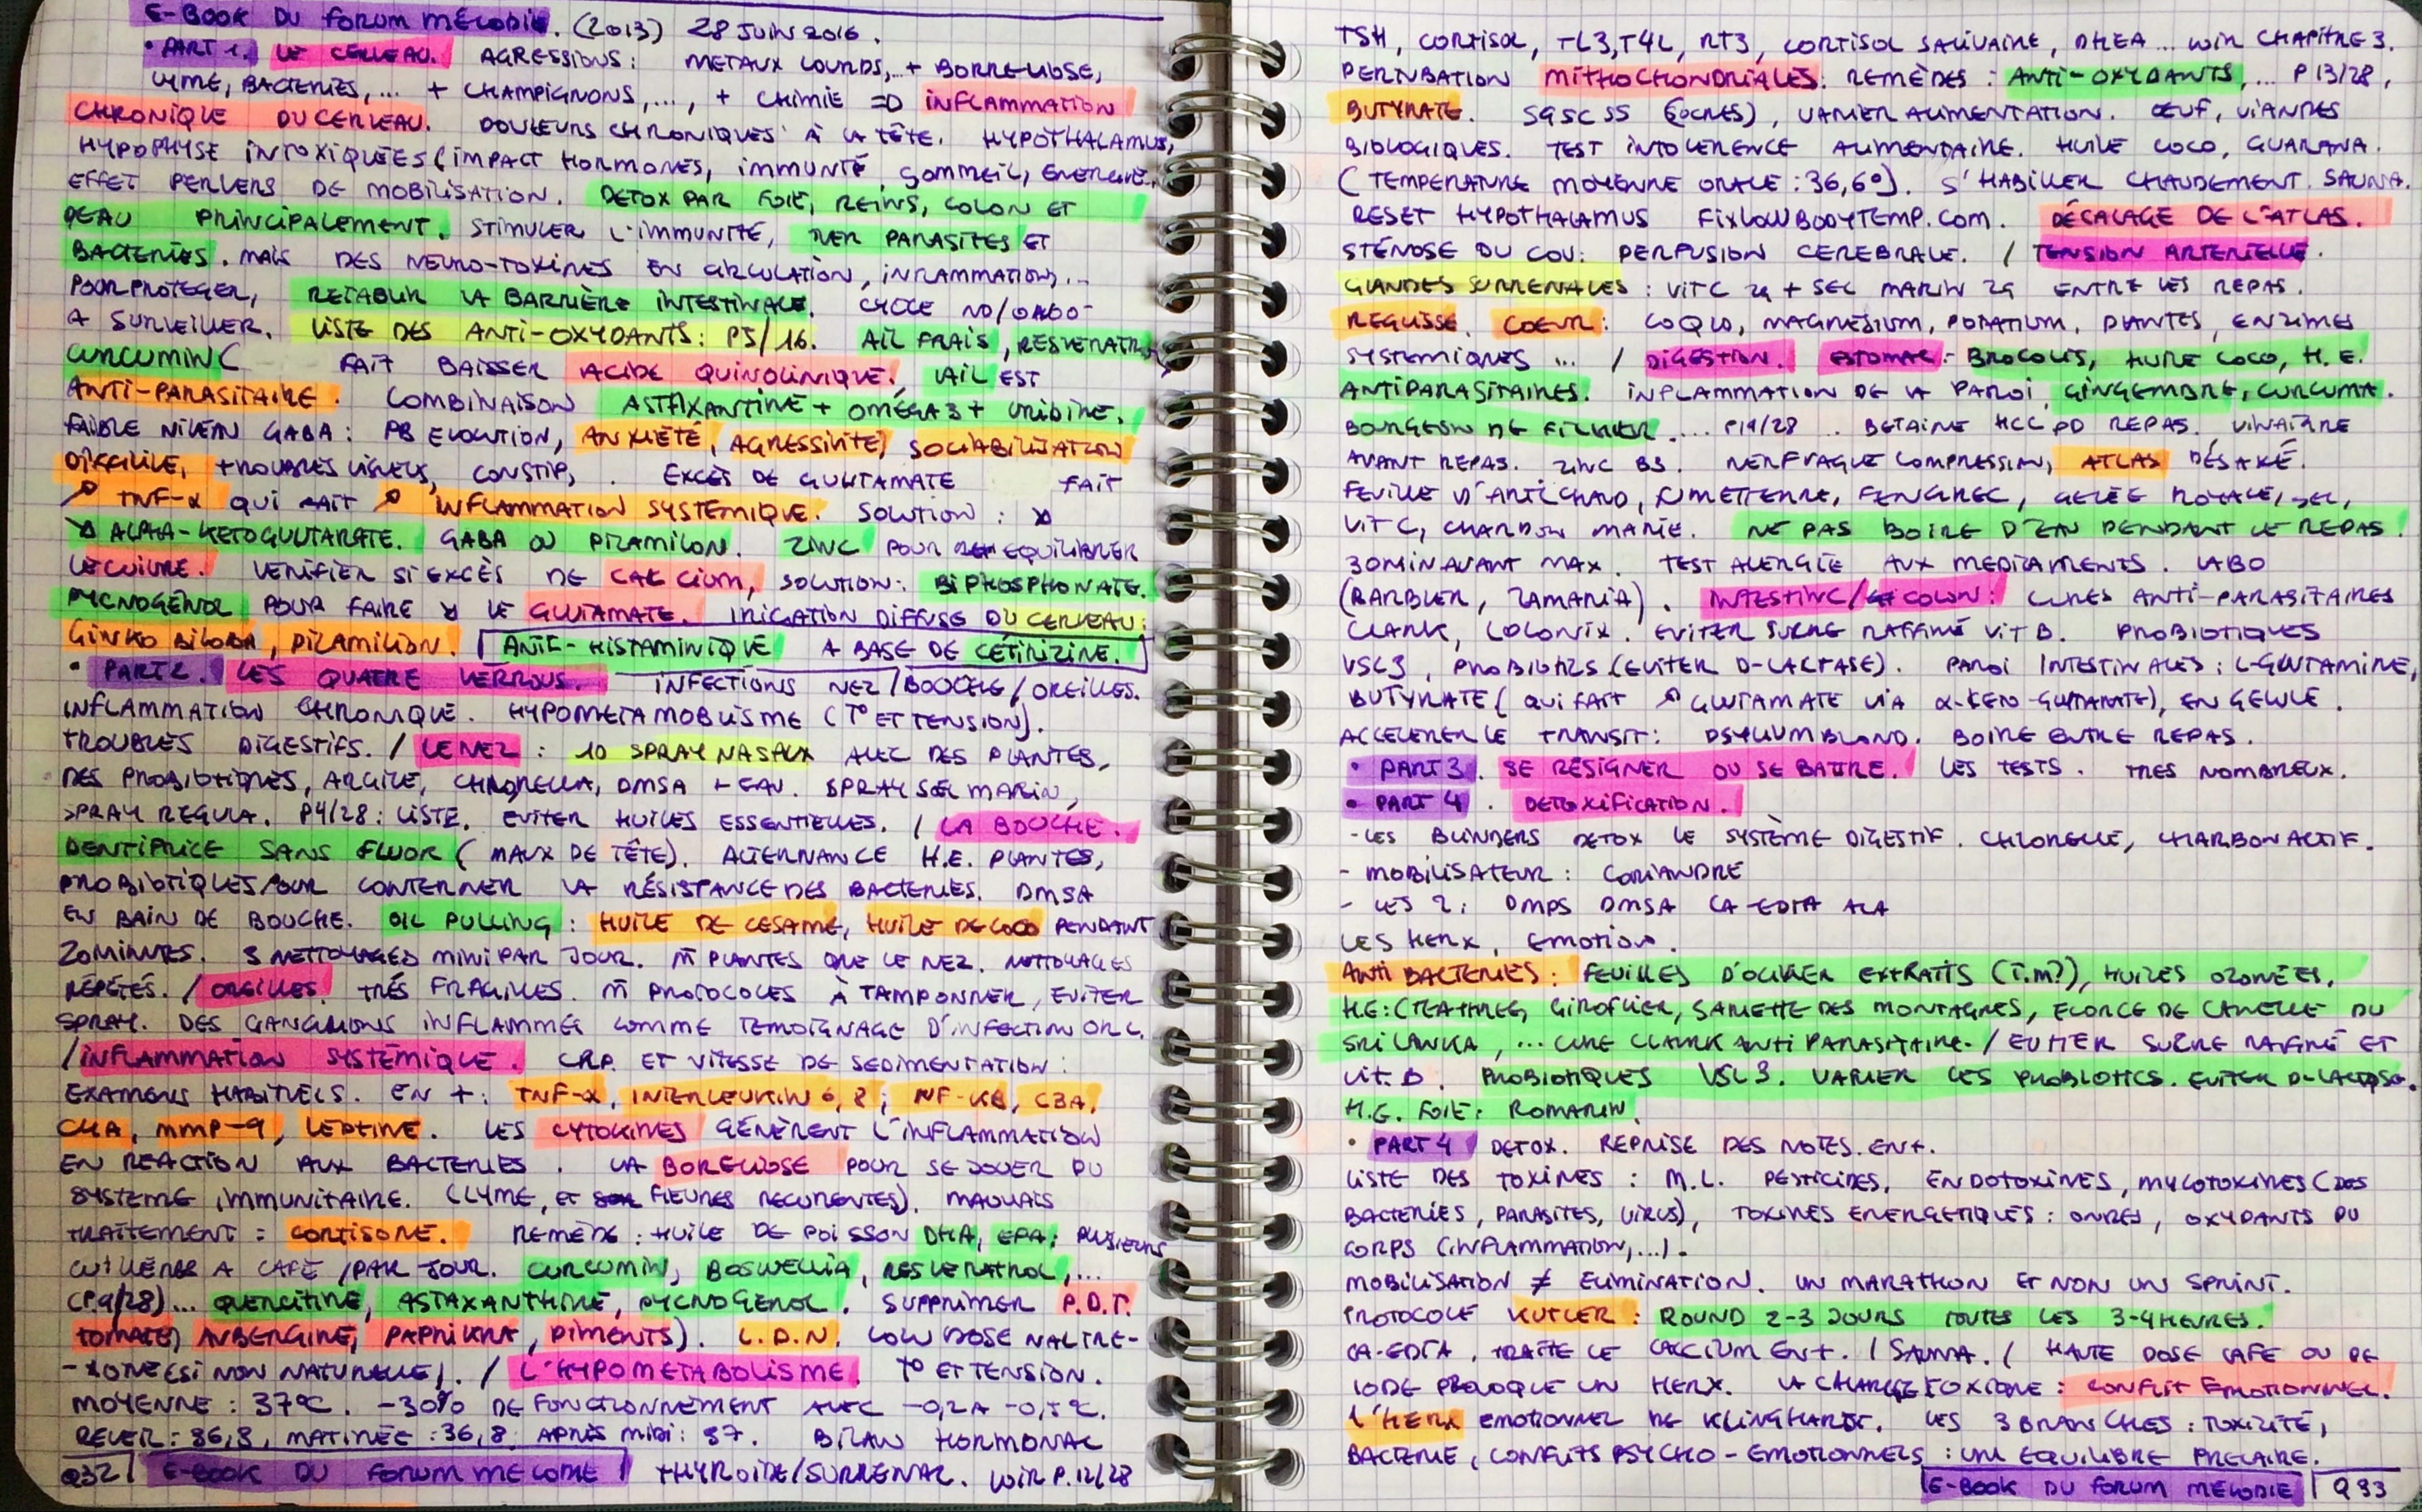 E-BOOK DU FORUM MÉLODIE. (2013) 28 JUIN 2016.
• PART 1. LE CERVEAU. AGRESSIONS: METAUX LOURDS,...+ BORRELIOSE,
LYME, BACTERIES,... + CHAMPIGNONS,..., + CHIMIE => INFLAMMATION
CHRONIQUE DU CERVEAU. DOULEURS CHRONIQUES À LA TÊTE. HYPOTHALAMUS,
HYPOPHYSE INTOXIQUÉES (IMPACT HORMONES, IMMUNTÉ, SOMMEIL, ENERGIE...
EFFET PERVERS DE MOBILISATION. DETOX PAR FOIE, REINS, COLON ET
PEAU PRINCIPALEMENT. STIMULER L'IMMUNITÉ, TUER PARASITES ET
BACTERIES. MAIS DES NEURO-TOXINES EN CIRCULATION, INFLAMMATION,...
POUR PROTEGER, RETABLIR LA BARRIÈRE INTESTINALE. CYCLE NO/ONOO-
A SURVEILLER. LISTE DES ANTI-OXYDANTS: P5/16. AIL FRAIS, RESVERATR
CURCUMINE FAIT BAISSER ACIDE QUINOLINIQUE. L'AIL EST
ANTI-PARASITAIRE. COMBINAISON ASTAXANTINE + OMÉGA 3 + URIDINE.
FAIBLE NIVEAU GABA: PB ELOCUTION, ANXIÉTÉ, AGRESSIVITÉ, SOCIABILISATION
DIFFICILE, TROUBLES VISUELS, CONSTIP, . EXCÈS DE GLUTAMATE FAIT
↗ TNF-α QUI FAIT ↗ INFLAMMATION SYSTÉMIQUE. SOLUTION: ↘
↘ ALPHA-KETOGLUTARATE. GABA OU PIRAMILON. ZINC POUR EQUILIBRER
LE CUIVRE. VERIFIER SI EXCÈS DE CALCIUM, SOLUTION: BIPHOSPHONATE.
PYCNOGÉNOL POUR FAIRE ↘ LE GLUTAMATE. IRIGATION DIFFUSE DU CERVEAU:
GINKO BILOBA, PIRAMILION. ANTI-HISTAMINIQUE A BASE DE CÉTIRIZINE.
• PART 2. LES QUATRE VERROUS. INFECTIONS NEZ/BOUCHE/OREILLES.
INFLAMMATION CHRONIQUE. HYPOMETAMOBLISME (T° ET TENSION).
TROUBLES DIGESTIFS. / LE NEZ: 10 SPRAY NASAUX AVEC DES PLANTES,
DES PROBIOTIQUES, ARGILE, CHLORELLA, DMSA + EAU. SPRAY SEL MARIN,
SPRAY REGULA. P4/28: LISTE. EVITER HUILES ESSENTIELLES. / LA BOUCHE.
DENTIFRICE SANS FLUOR (MAUX DE TÊTE). ALTERNANCE H.E. PLANTES,
PROBIOTIQUES POUR CONTERNER LA RÉSISTANCE DES BACTERIES. DMSA
EN BAIN DE BOUCHE. OIL PULLING: HUILE DE CESAME, HUILE DE COCO PENDANT
20 MINUTES. 3 NETTOYAGES MINI PAR JOUR. M̄ PLANTES QUE LE NEZ. NETTOYAGES
RÉPÉTÉS. / OREILLES. TRÉS FRAGILES. M̄ PROTOCOLES À TAMPONNER, EVITER
SPRAY. DES GANGLIONS INFLAMMÉS COMME TEMOIGNAGE D'INFECTION ORL.
/ INFLAMMATION SYSTÉMIQUE. CRP. ET VITESSE DE SEDIMENTATION:
EXAMENS HABITUELS. EN +: TNF-α, INTERLEUKIN 6, 8; NF-KB, C3A,
C4A, MMP-9, LEPTINE. LES CYTOKINES GÉNÈRENT L'INFLAMMATION
EN REACTION AUX BACTERIES. LA BORELIOSE POUR SE JOUER DU
SYSTEME IMMUNITAIRE. (LYME, ET FIEVRES RECURENTES). MAUVAIS
TRAITEMENT = CORTISONE. REMÈDE: HUILE DE POISSON DHA, EPA; PLUSIEURS
CUILLÉRES A CAFE / PAR JOUR. CURCUMIN, BOSWELLIA, RESVERATROL,...
(P.9/28)... QUERCITINE, ASTAXANTHINE, PYCNOGENOL. SUPPRIMER P.D.T.
TOMATE, AUBERGINE, PAPRIKRA, PIMENTS). L.D.N. LOW DOSE NALTRE-
-XONE (SI NON NATURELLE). / L'HYPOMETABOLISME. T° ET TENSION.
MOYENNE: 37°C. -30% DE FONCTIONNEMENT AVEC -0,2 A -0,5°C.
REVER: 36,3, MATINÉE: 36,8; APRÈS MIDI: 37. BILAN HORMONAL
Q32 E-BOOK DU FORUM MELODIE THYROIDE/SURRENAL. VOIR P.12/28
TSH, CORTISOL, TL3, T4L, RT3, CORTISOL SALIVAIRE, DHEA... VOIR CHAPITRE 3.
PERTUBATION MITHOCHONDRIALES: REMÈDES: ANTI-OXYDANTS,... P13/28,
BUTYRATE. 5952 55 (OCRES), VARIER ALIMENTATION. ŒUF, VIANDES
BIOLOGIQUES. TEST INTOLERENCE ALIMENTAIRE. HUILE COCO, GUARANA.
(TEMPERATURE MOYENNE ORALE: 36,6°). S'HABILLER CHAUDEMENT. SAUNA.
RESET HYPOTHALAMUS FIXLOWBODYTEMP.COM. DÉCALAGE DE L'ATLAS.
STÉNOSE DU COU: PERFUSION CEREBRALE. / TENSION ARTERIELLE.
GLANDES SURRENALES: VIT C 2g + SEL MARIN 2g ENTRE LES REPAS.
REGLISSE. COEUR: COQ10, MAGNÉSIUM, POTATIUM, PLANTES, ENZIMES
SYSTEMIQUES ... / DIGESTION. ESTOMAC: BROCOLIS, HUILE COCO, H.E.
ANTIPARASITAIRES. INFLAMMATION DE LA PAROI, GINGEMBRE, CURCUMA.
BOURGEON DE FIGUIER.... P19/28 .. BETAINE HCL PD REPAS. VINAIGRE
AVANT REPAS. ZINC B3. NERF VAGUE COMPRESSION, ATLAS DÉSAXÉ.
FEUILLE D'ARTICHAUD, FUMETERRE, FENUGREC, GELÉE ROYALE, SEL,
VIT C, CHARDON MARIE. NE PAS BOIRE D'EAU PENDANT LE REPAS!
30 MIN AVANT MAX. TEST ALERGIE AUX MEDICAMENTS. LABO
(BARBIER, ZAMARIA). INTESTINS/COLON: CURES ANTI-PARASITAIRES
CLARK, COLONIX. EVITER SUCRE RAFFINÉ VIT B. PROBIOTIQUES
VSL3, PROBIOTICS (EVITER D-LACTASE). PAROI INTESTINALES: L-GLUTAMINE,
BUTYRATE (QUI FAIT ↗ GLUTAMATE VIA α-KETO-GLUTAMATE), EN GELULE.
ACCELERER LE TRANSIT: PSYLLIUM BLOND. BOIRE ENTRE REPAS.
• PART 3. SE RÉSIGNER OU SE BATTRE. LES TESTS. TRES NOMBREUX.
• PART 4. DETOXIFICATION.
- LES BLINDERS DETOX LE SYSTÈME DIGESTIF. CHLORELLE, CHARBON ACTIF.
- MOBILISATEUR: CORIANDRE
- LES 2: DMPS DMSA CA-EDTA ALA
LES HERX, EMOTION.
ANTI BACTERIES: FEUILLES D'OLIVIER EXTRAITS (T.M?), HUILES OZONÉES,
H.E: (TEATHREE, GIROFLIER, SARIETTE DES MONTAGNES, ECORCE DE CANELLE DU
SRI LANKA, ... CURE CLARK ANTI PARASITAIRE. / EVITER SUCRE RAFFINÉ ET
VIT. B. PROBIOTIQUES VSL3. VARIER LES PROBIOTICS. EVITER D-LACTOSE.
H.E. FOIE: ROMARIN.
• PART 4 DETOX. REPRISE DES NOTES. EN+.
LISTE DES TOXINES: M.L. PESTICIDES, ENDOTOXINES, MYCOTOXINES (DES
BACTERIES, PARASITES, VIRUS), TOXINES ENERGETIQUES: ONDES, OXYDANTS DU
CORPS (INFLAMMATION,...).
MOBILISATION ≠ ELIMINATION. UN MARATHON ET NON UN SPRINT.
PROTOCOLE KUTLER: ROUND 2-3 JOURS TOUTES LES 3-4 HEURES.
CA-EDTA, TRAITE LE CALCIUM EN+. / SAUNA. / HAUTE DOSE CAFE OU DE
IODE PROVOQUE UN HERX. LA CHARGE TOXIQUE: CONFLIT EMOTIONNEL.
L'HERX EMOTIONNEL DE KLINGHARDT. LES 3 BRANCHES: TOXICITÉ,
BACTERIE, CONFLITS PSYCHO-EMOTIONNELS: UNE EQUILIBRE PRECAIRE.
E-BOOK DU FORUM MELODIE Q33